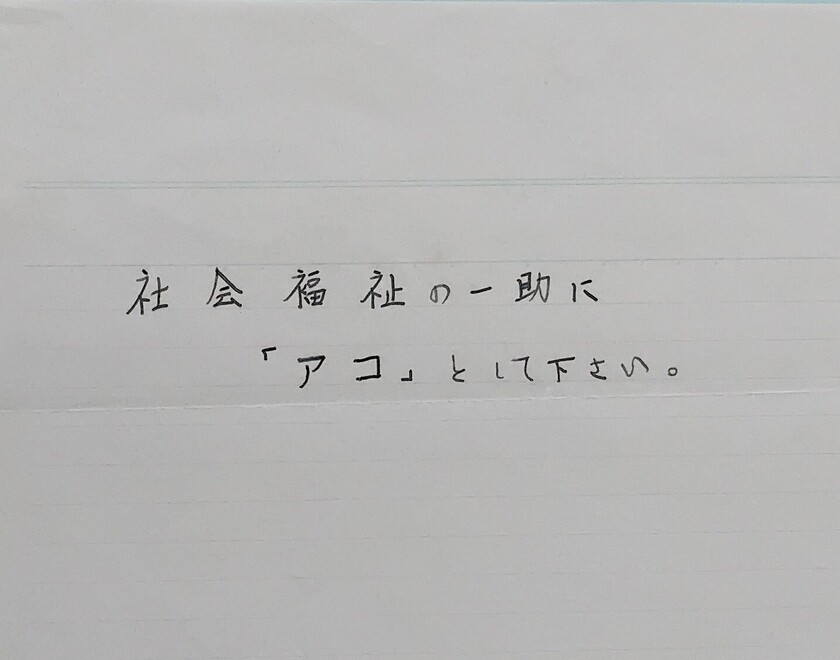 社会福祉の一助に
「アコ」として下さい。